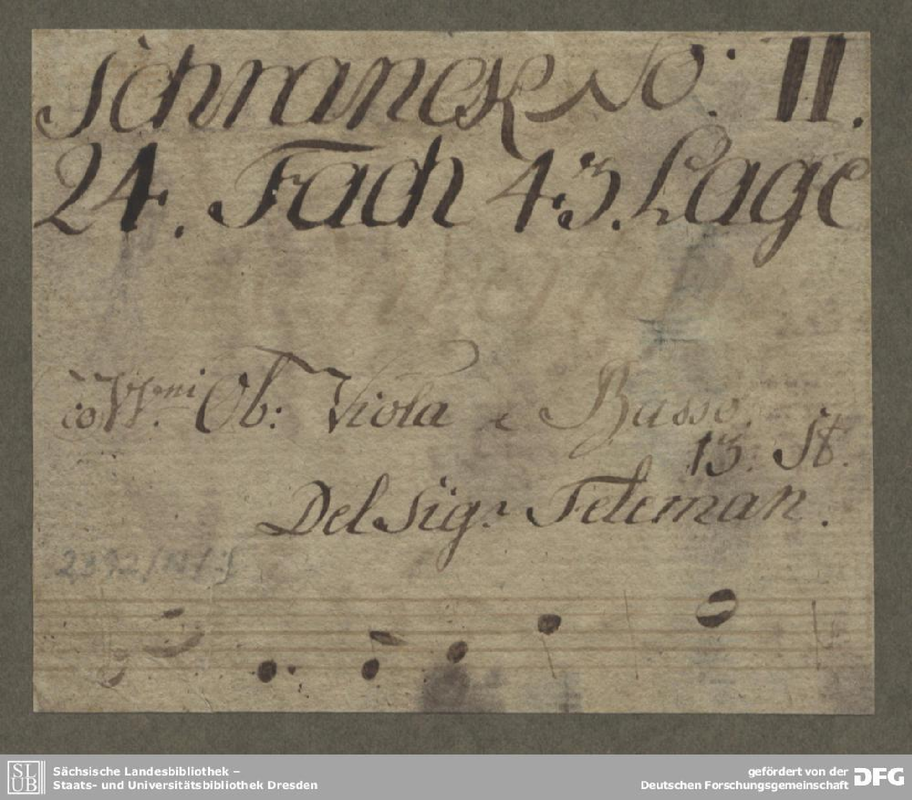 Schranck No: II.
24. Fach 43. Lage
co VV.ni Ob: Viola e Basso.
13. St.
Del Sig.r Teleman.
2392/O/
SLUB
Sächsische Landesbibliothek –
Staats- und Universitätsbibliothek Dresden
gefördert von der
Deutschen Forschungsgemeinschaft DFG